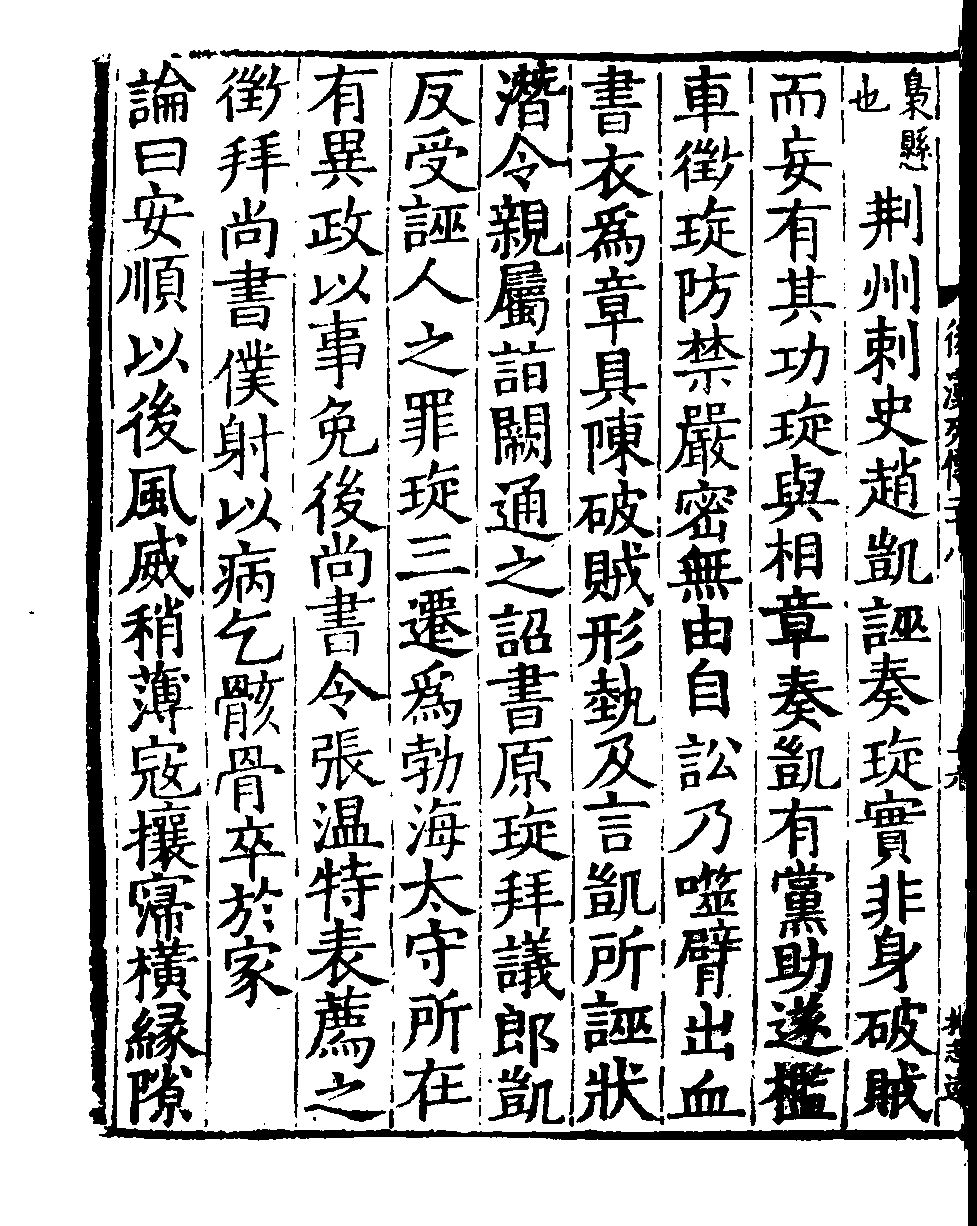 梟縣也荆州刺史趙凱誣奏琁實非身破賊
而妄有其功琁與相章奏凱有黨助遂檻
車徵琁防禁嚴密無由自訟乃噬臂出血
書衣爲章具陳破賊形埶及言凱所誣狀
潛令親屬詣闕通之詔書原琁拜議郎凱
反受誣人之罪琁三遷爲勃海太守所在
有異政以事免後尚書令張温特表薦之
徵拜尚書僕射以病乞骸骨卒於家
論曰安順以後風威稍薄寇攘寖橫緣隙